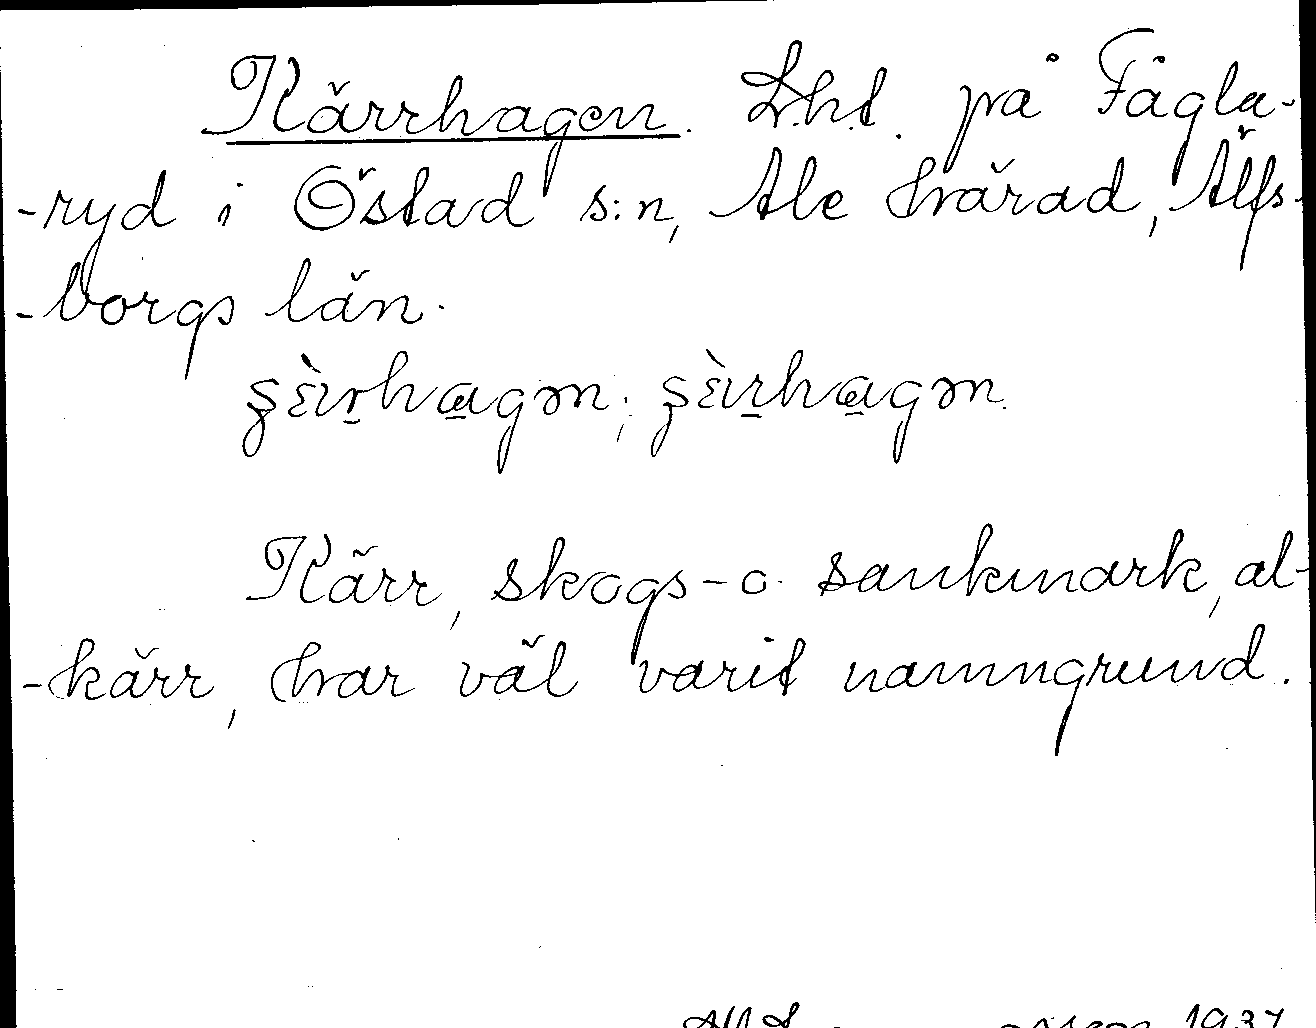 Kärrhagen. Lht. på Fågla-
-ryd i Östad s:n, Ale härad, Älfs-
-borgs län.
ʂɛ̀ɪr̲ha̲gən; ʂɛ̀ɪr̲ha̲gən.
Kärr, skogs- o. sankmark, al-
-kärr, har väl varit namngrund.
1937